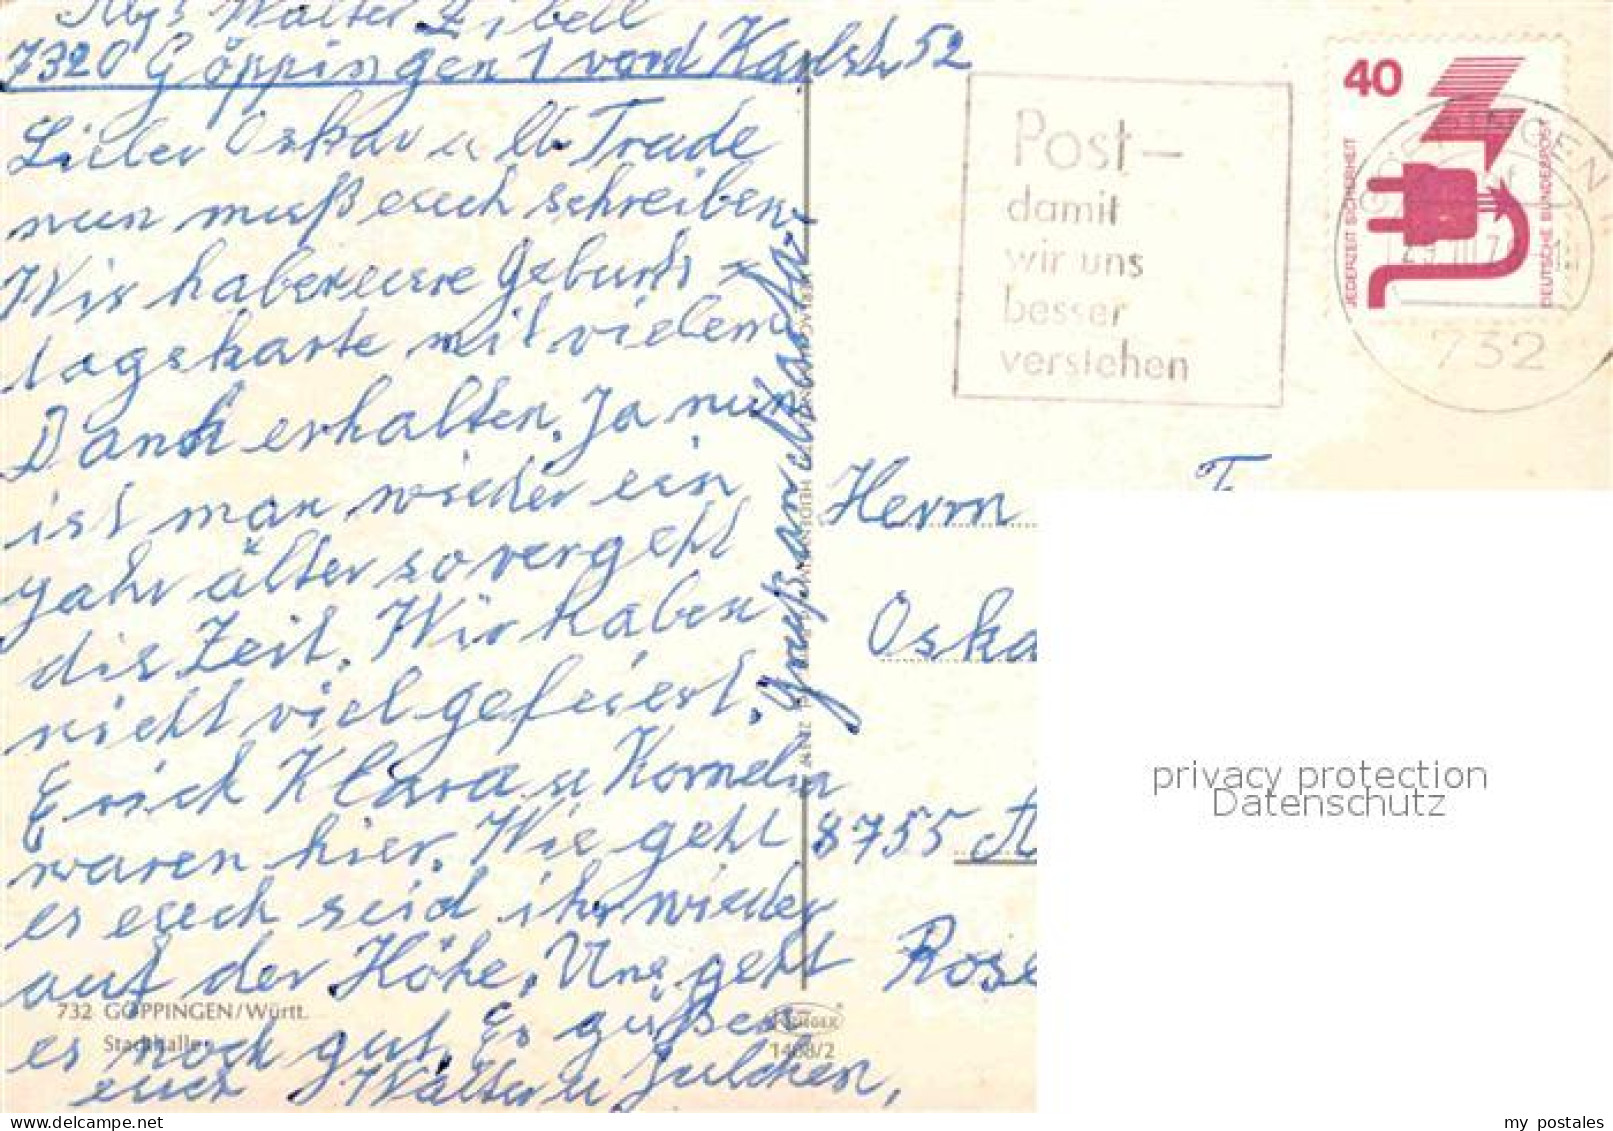 Walter Zibell
7320 Göppingen 1 vord Karlstr 52
Lieber Oskar u lb Trude
nun muß euch schreiben
Wir haben eure Geburts-
tagskarte mit vielem
Dank erhalten. Ja nun
ist man wieder ein
Jahr älter so vergeht
die Zeit. Wir haben
nicht viel gefeiert.
Erich Klara u Kornelia
waren hier. Wie geht
es euch seid ihr wieder
auf der Höhe. Uns geht
es noch gut. Es grüßen
euch Walter u Julchen,
Gruß an
732 GÖPPINGEN/Württ.
Stadthalle
KRÜGER
1408/2
Post-
damit
wir uns
besser
verstehen
40
JEDERZEIT SICHERHEIT
DEUTSCHE BUNDESPOST
732
Herrn F
Oska
8755 A
Rose
privacy protection
Datenschutz
my postales